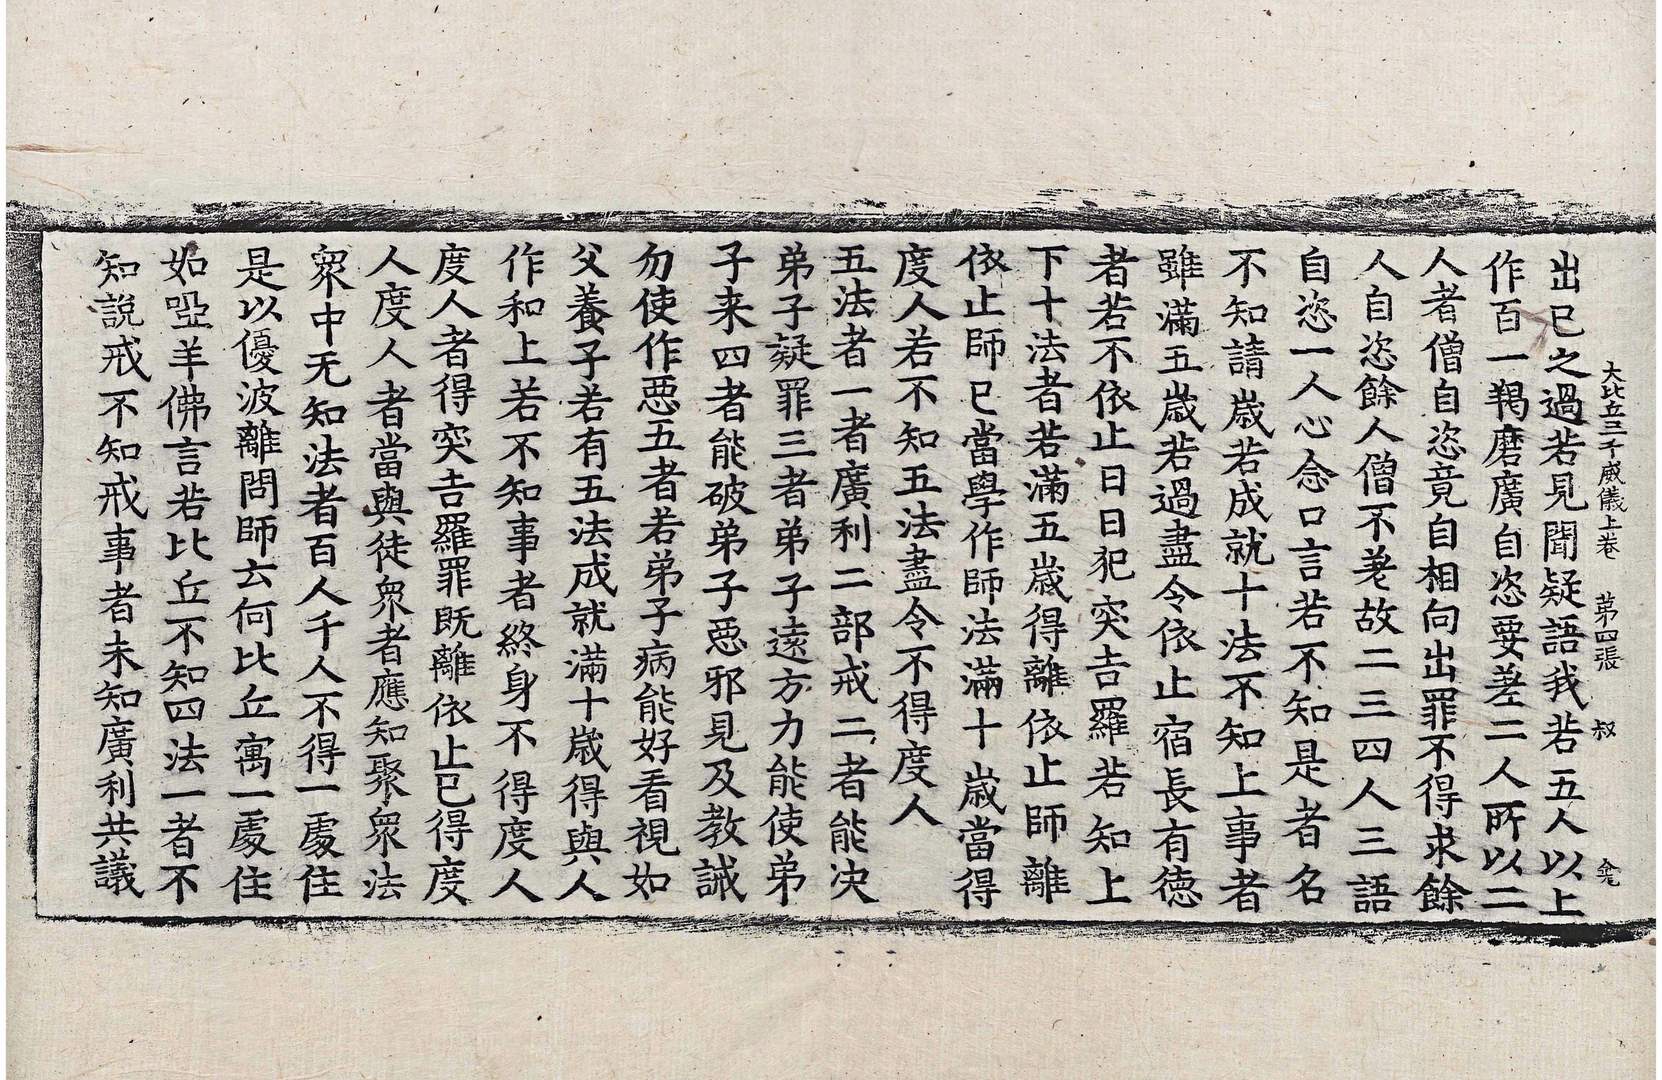 大比丘三千威儀上卷　第四張　叔
出已之過若見聞疑語我若五人以上
作百一羯磨廣自恣要差二人所以二
人者僧自恣竟自相向出罪不得求餘
人自恣餘人僧不差故二三四人三語
自恣一人心念口言若不知是者名
不知請歲若成就十法不知上事者
雖滿五歲若過盡令依止宿長有德
者若不依止日日犯突吉羅若知上
下十法者若滿五歲得離依止師離
依止師已當學作師法滿十歲當得
度人若不知五法盡令不得度人
五法者一者廣利二部戒二者能决
弟子疑罪三者弟子遠方力能使弟
子来四者能破弟子惡邪見及教誡
勿使作惡五者若弟子病能好看視如
父養子若有五法成就滿十歲得與人
作和上若不知事者終身不得度人
度人者得突吉羅罪既離依止已得度
人度人者當與徒衆者應知聚衆法
衆中无知法者百人千人不得一處住
是以優波離問師云何比丘寓一處住
如啞羊佛言若比丘不知四法一者不
知說戒不知戒事者未知廣利共議